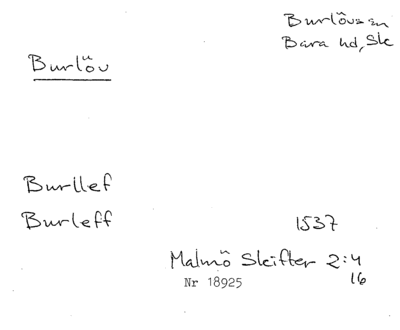 Burlövs sn
Bara hd, Sk
Burlöv
Burllef
Burleff 1537
Malmö Skifter 2:4
16
Nr 18925